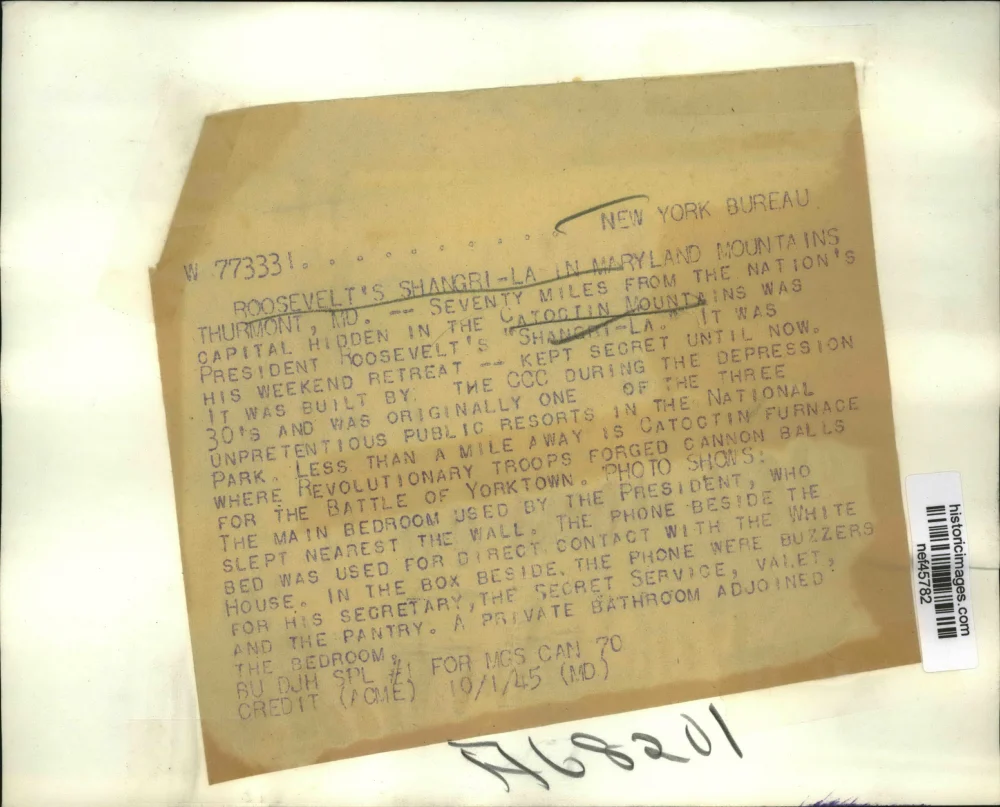 NEW YORK BUREAU
W 773331. . . . . . . . . .
ROOSEVELT'S SHANGRI-LA IN MARYLAND MOUNTAINS
THURMONT, MD. -- SEVENTY MILES FROM THE NATION'S
CAPITAL HIDDEN IN THE CATOCTIN MOUNTAINS WAS
PRESIDENT ROOSEVELT'S "SHANGRI-LA." IT WAS
HIS WEEKEND RETREAT -- KEPT SECRET UNTIL NOW.
IT WAS BUILT BY THE CCC DURING THE DEPRESSION
30'S AND WAS ORIGINALLY ONE OF THE THREE
UNPRETENTIOUS PUBLIC RESORTS IN THE NATIONAL
PARK. LESS THAN A MILE AWAY IS CATOCTIN FURNACE
WHERE REVOLUTIONARY TROOPS FORGED CANNON BALLS
FOR THE BATTLE OF YORKTOWN. PHOTO SHOWS:
THE MAIN BEDROOM USED BY THE PRESIDENT, WHO
SLEPT NEAREST THE WALL. THE PHONE BESIDE THE
BED WAS USED FOR DIRECT CONTACT WITH THE WHITE
HOUSE. IN THE BOX BESIDE THE PHONE WERE BUZZERS
FOR HIS SECRETARY, THE SECRET SERVICE, VALET,
AND THE PANTRY. A PRIVATE BATHROOM ADJOINED
THE BEDROOM.
BU DJH SPL #1 FOR MGS CAN 70
CREDIT (ACME) 10/1/45 (MD.)
A68201
historicimages.com
nef45782